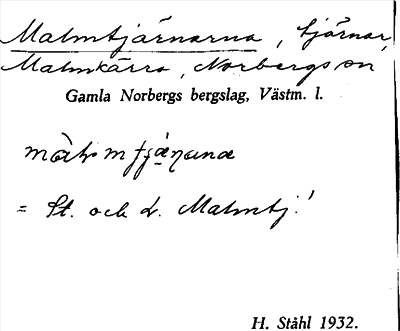 Malmtjärnarna, tjärnar,
Malmkärra, Norbergs sn
Gamla Norbergs bergslag, Västm. l.
= St. och L. Malmtj.!
H. Ståhl 1932.